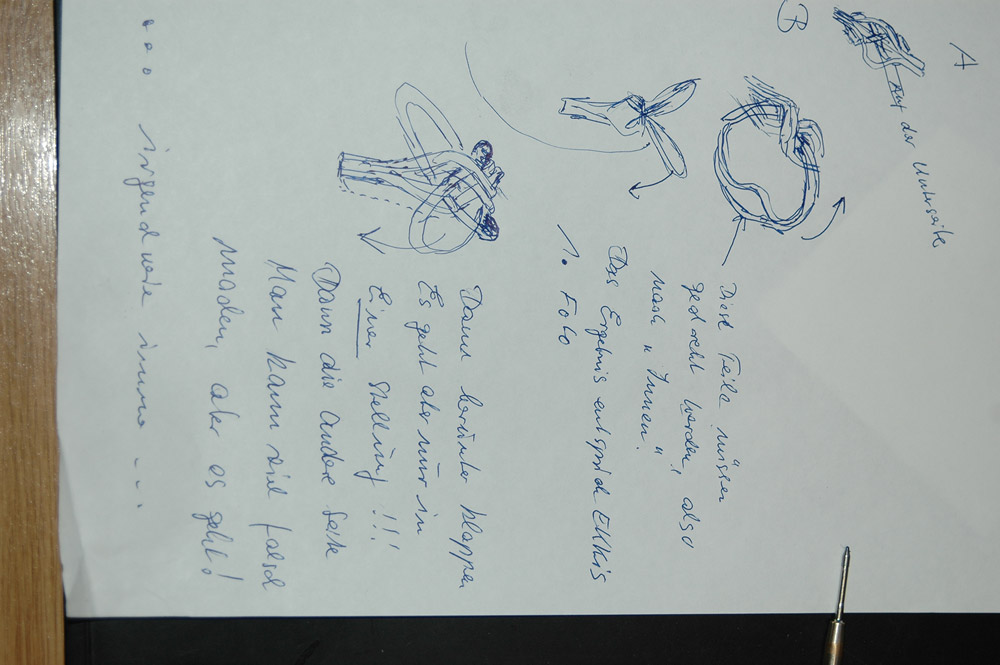 A
Auf der Unterseite
B
Diese Teile müssen
gedreht werden, also
nach "Innen".
Das Ergebnis entspricht Ekkis
1. Foto
Dann herunter klappen
Es geht aber nur in
Einer Stellung!!!
Dann die andere Seite
Man kann viel falsch
machen, aber es geht!
... irgendwie immer ...